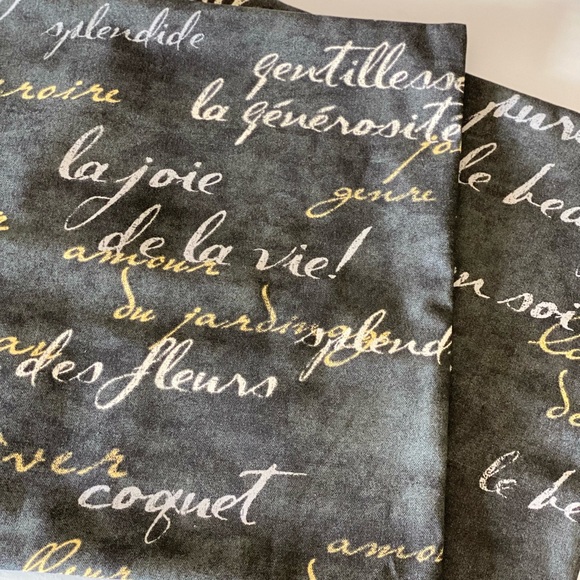 splendide
gentillesse
la générosité
la joie
genre
de la vie!
amour
du jardin
splend
des fleurs
coquet
amou
le bea
n soi
le be